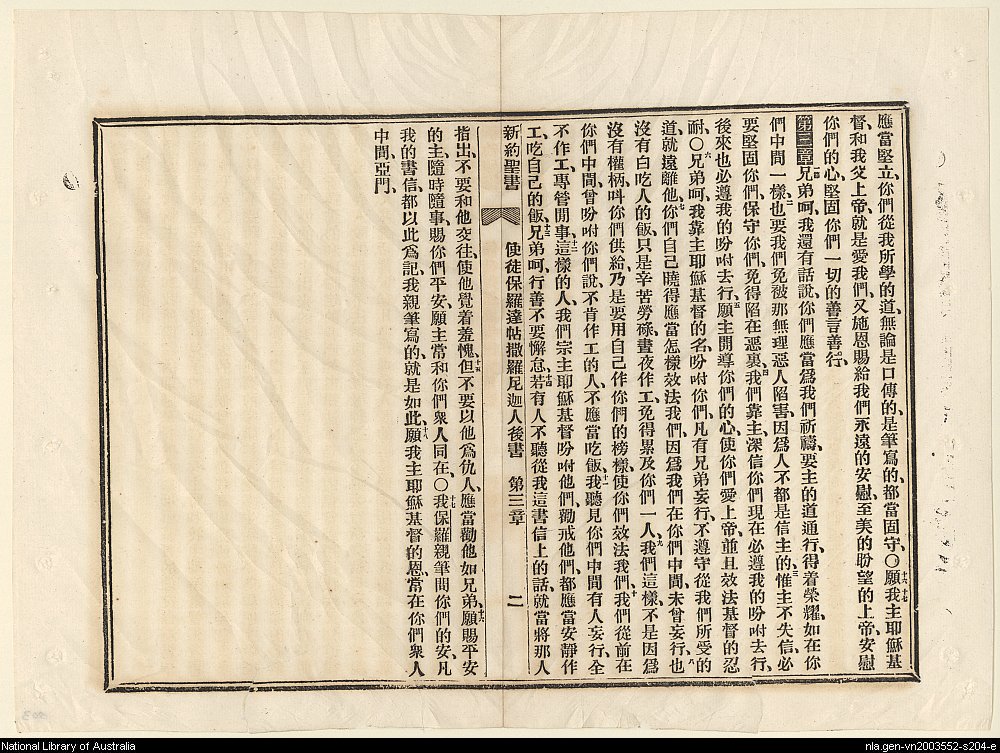 應當堅立、你們從我所學的道、無論是口傳的、是筆寫的、都當固守、〇十六願十七我主耶穌基
督和我父上帝、就是愛我們、又施恩賜給我們永遠的安慰、至美的盼望的上帝、安慰
你們的心、堅固你們一切的善言善行、
第三章一兄弟呵、我還有話說、你們應當爲我們祈禱、要主的道通行、得着榮耀、如在你
們中間一樣、二也要我們免被那無理惡人陷害、因爲人不都是信主的、三惟主不失信、必
要堅固你們、保守你們、免得陷在惡裏、四我們靠主、深信你們現在必遵我的吩咐去行、
後來也必遵我的吩咐去行、五願主開導你們的心、使你們愛上帝、並且效法基督的忍
耐、〇六兄弟呵、我靠主耶穌基督的名、吩咐你們、凡有兄弟妄行、不遵守從我們所受的
道、就遠離他、七你們自己曉得應當怎樣效法我們、因爲我們在你們中間、未曾妄行、八也
沒有白吃人的飯、只是辛苦勞碌、晝夜作工、免得累及你們一人、九我們這樣、不是因爲
沒有權柄叫你們供給、乃是要用自己作你們的榜樣、使你們效法我們、十我們從前在
你們中間、曾吩咐你們說、不肯作工的人不應當吃飯、十一我聽見你們中間有人妄行、全
不作工、專管閒事、十二這樣的人、我們宗主耶穌基督吩咐他們、勸戒他們、都應當安靜作
工、吃自己的飯、十三兄弟呵、行善不要懈怠、十四若有人不聽從我這書信上的話、就當將那人
新約聖書 使徒保羅達帖撒羅尼迦人後書 第三章 二
指出、不要和他交往、使他覺着羞愧、十五但不要以他爲仇人、應當勸他如兄弟、十六願賜平安
的主、隨時隨事、賜你們平安、願主常和你們衆人同在、〇十七我保羅親筆問你們的安、凡
我的書信都以此爲記、我親筆寫的、就是如此、十八願我主耶穌基督的恩、當在你們衆人
中間、亞們、